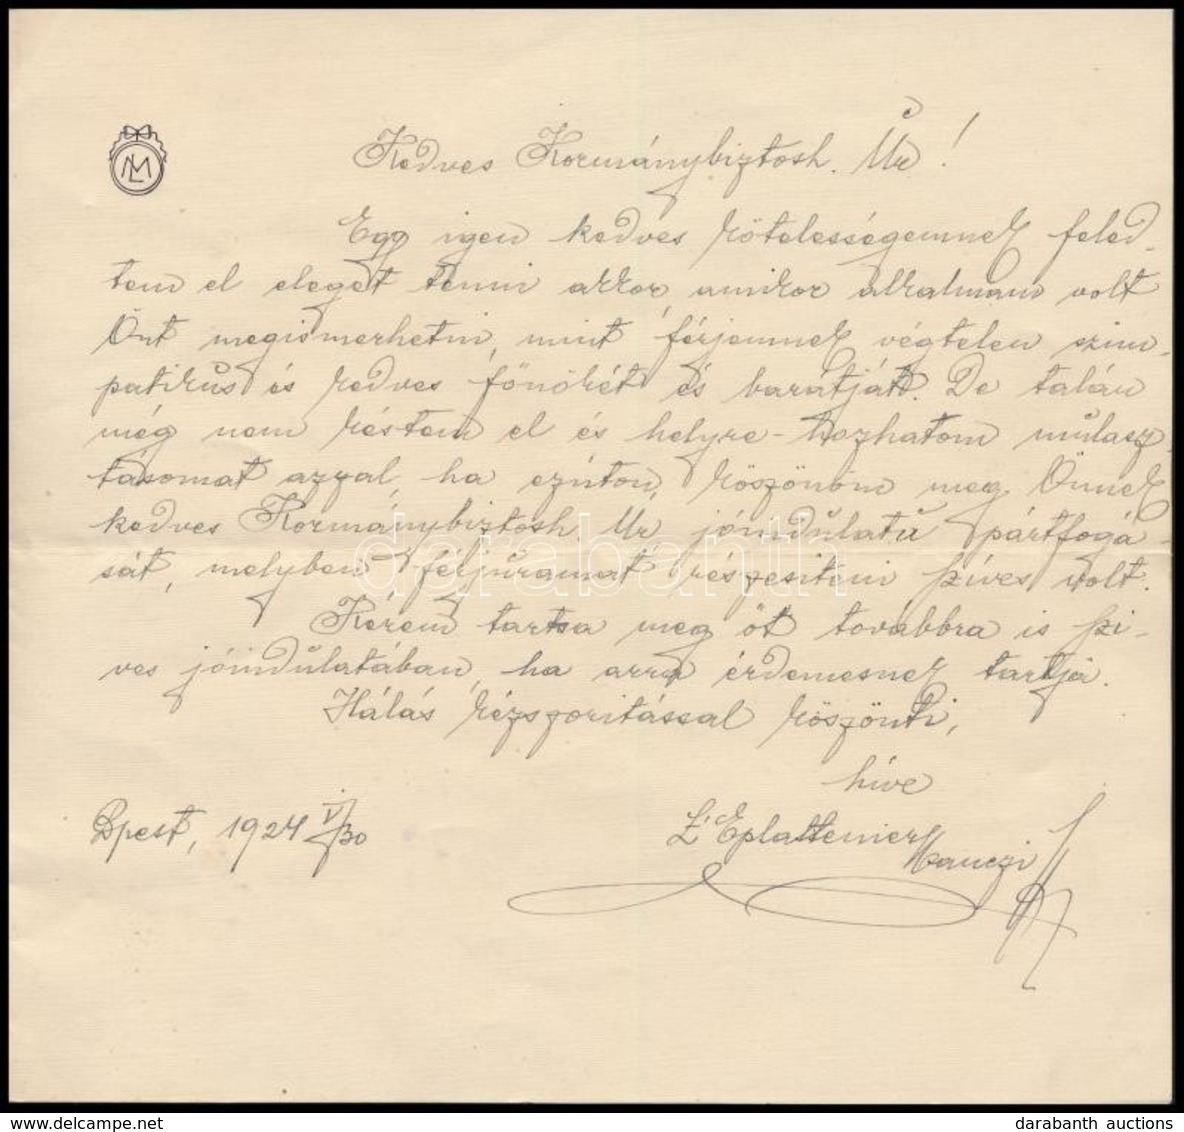 LM
Kedves Kormánybiztosh. Úr!
Egy igen kedves kötelességemnek feled-
tem el eleget tenni akkor, amikor alkalmam volt
Önt megismerhetni, mint férjemnek végtelen szim-
patikus és kedves főnökét és barátját. De talán
még nem késtem el és helyre-hozhatom mulasz-
tásomat azzal, ha ezúton, köszönöm meg Önnek
kedves Kormánybiztosh. Ur jóindulatú pártfogá-
sát, melyben férjuramat részesíteni szíves volt.
Kérem tartsa meg őt továbbra is szí-
ves jóindulatában, ha arra érdemesnek tartja.
Hálás kézszorítással köszönti,
híve
Bpest, 1924 V/30
L'Eplattenier
Manczi
darabanth
delcampe.net
darabanth auctions